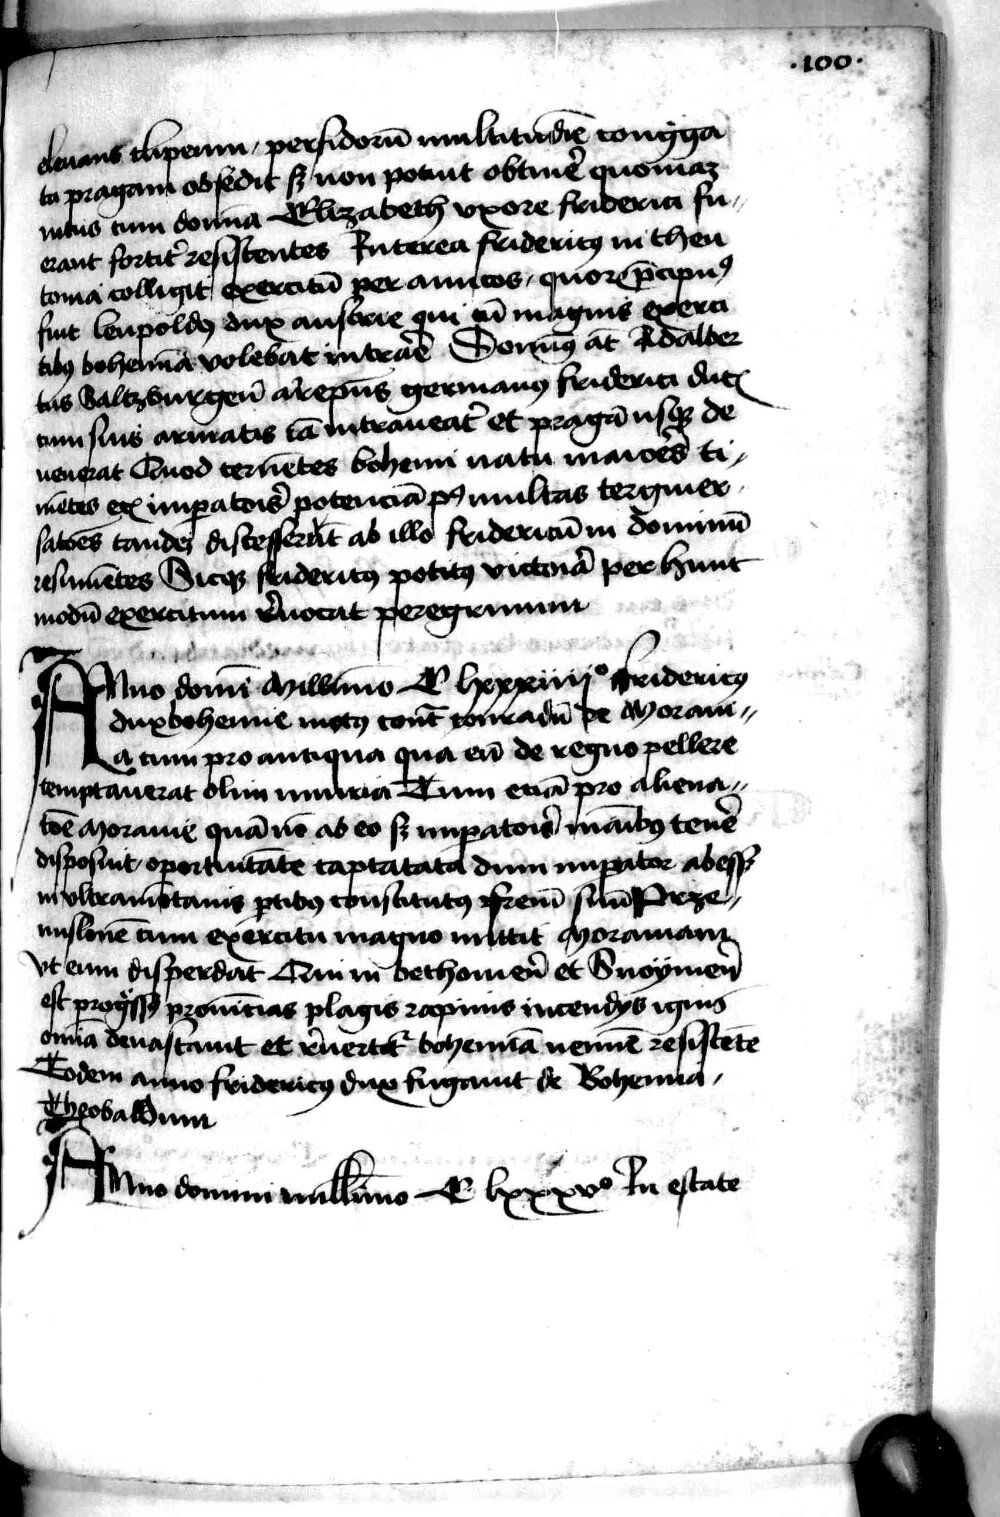 ·100·
elevans clipeum, perfidorū multitudiē congrga
ta pragam obsedit sʒ non potuit obtinē quoniaʒ
intus cum domina Elizabeth vxore friderici fu„
erant fortit͛ resistentes Interea fridericꝯ in theu
tonia colligit exercitū per amicos, quorꝫ p̄cipuꝯ
fuit leupoldꝯ dux austrie qui cū magnis exerci
tibꝯ bohemiā volebat intrare Dominꝯ āt Adalber
tus Saltzburgeñ ar̄epūs germanꝯ friderici ducꝭ
cum suis armatis iā intraueāt et pragā usqꝫ de
uenerat Quod cernētes bohemi natu maiores ti„
mētes etꝭ imp̄atoris potenciā pꝯ multas tergiuer„
satoēs tandeʒ discesserūt ab illo fridericū in dominū
resumētes Sicqꝫ fridericꝯ potitꝯ victoria per hunc
modū exercitum reuocat peregrinum
Anno domini Millimo C lxxxiiijº fridericꝯ
dux bohemie motꝯ cont͛ conradū de Moraui„
a tum pro antiqua qua eū de regno pellere
temptauerat olim iniuria Tum etiā pro aliena„
toē Morauie quā nō ab eo sʒ imp̄atoris manibꝯ tenē
disposuit, oportunitate captatata dum imp̄ator abess͛
in vltramōtanis p̄tibꝯ constitutꝯ frem̄ suū Prze„
mislonē cum exercitu magno mittit Morauiam
vt eum disperdat Qui in bethoueñ et Snoymeñ
est progress͛ prouīcias plagis rapinis incendys igniś
omīa deuastauit et reuertit͛ bohemiā nemīe resistēte
Eodem anno fridericꝯ dux fugauit de Bohemia,
Theobaldum
Anno domini millimo C lxxxvº In estate